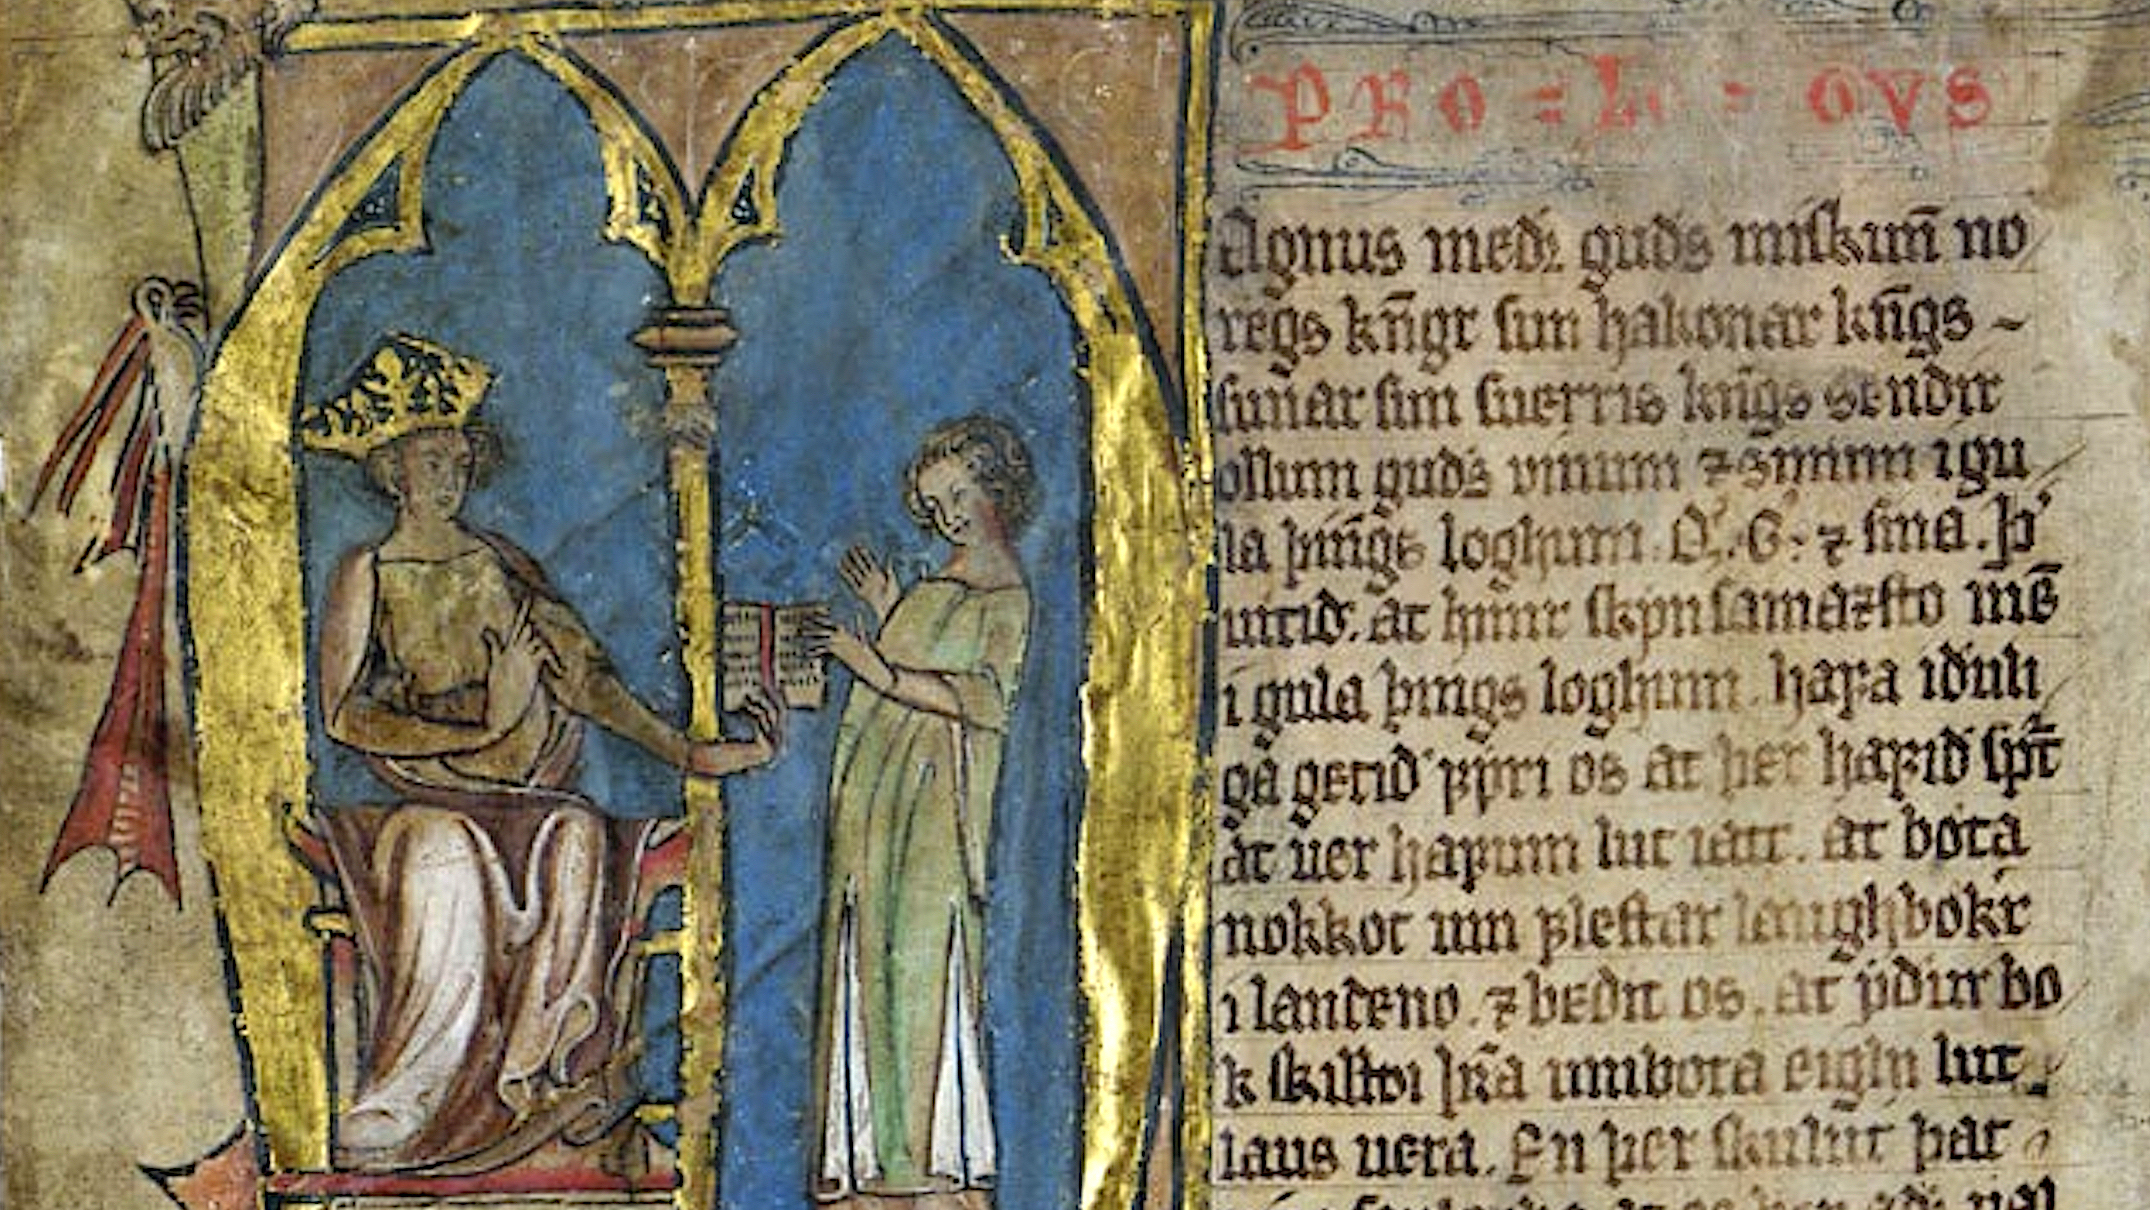 PRO=L.=.OVS
agnus med guds miskun̄ no
regs kn̄gr sun hakonar kn̄gs ~
sunar sun suerris kn̄gs sendir
ollum guds vinum ⁊ sinum i gu
la þin̄gs loghum .Q.G. ⁊ sina. þ'
uitid. at hinir skynsamazsto mē
i gula þings loghum. hafa iduli
ga getid fyri os at þer hafid spt
at uer hafum lut iatt. at bota
nokkot um flestar laughbokr
i landeno. ⁊ bedit os. at ydur bo
k skilldi umbota eighi lut
laus uera. En þer skulut þat